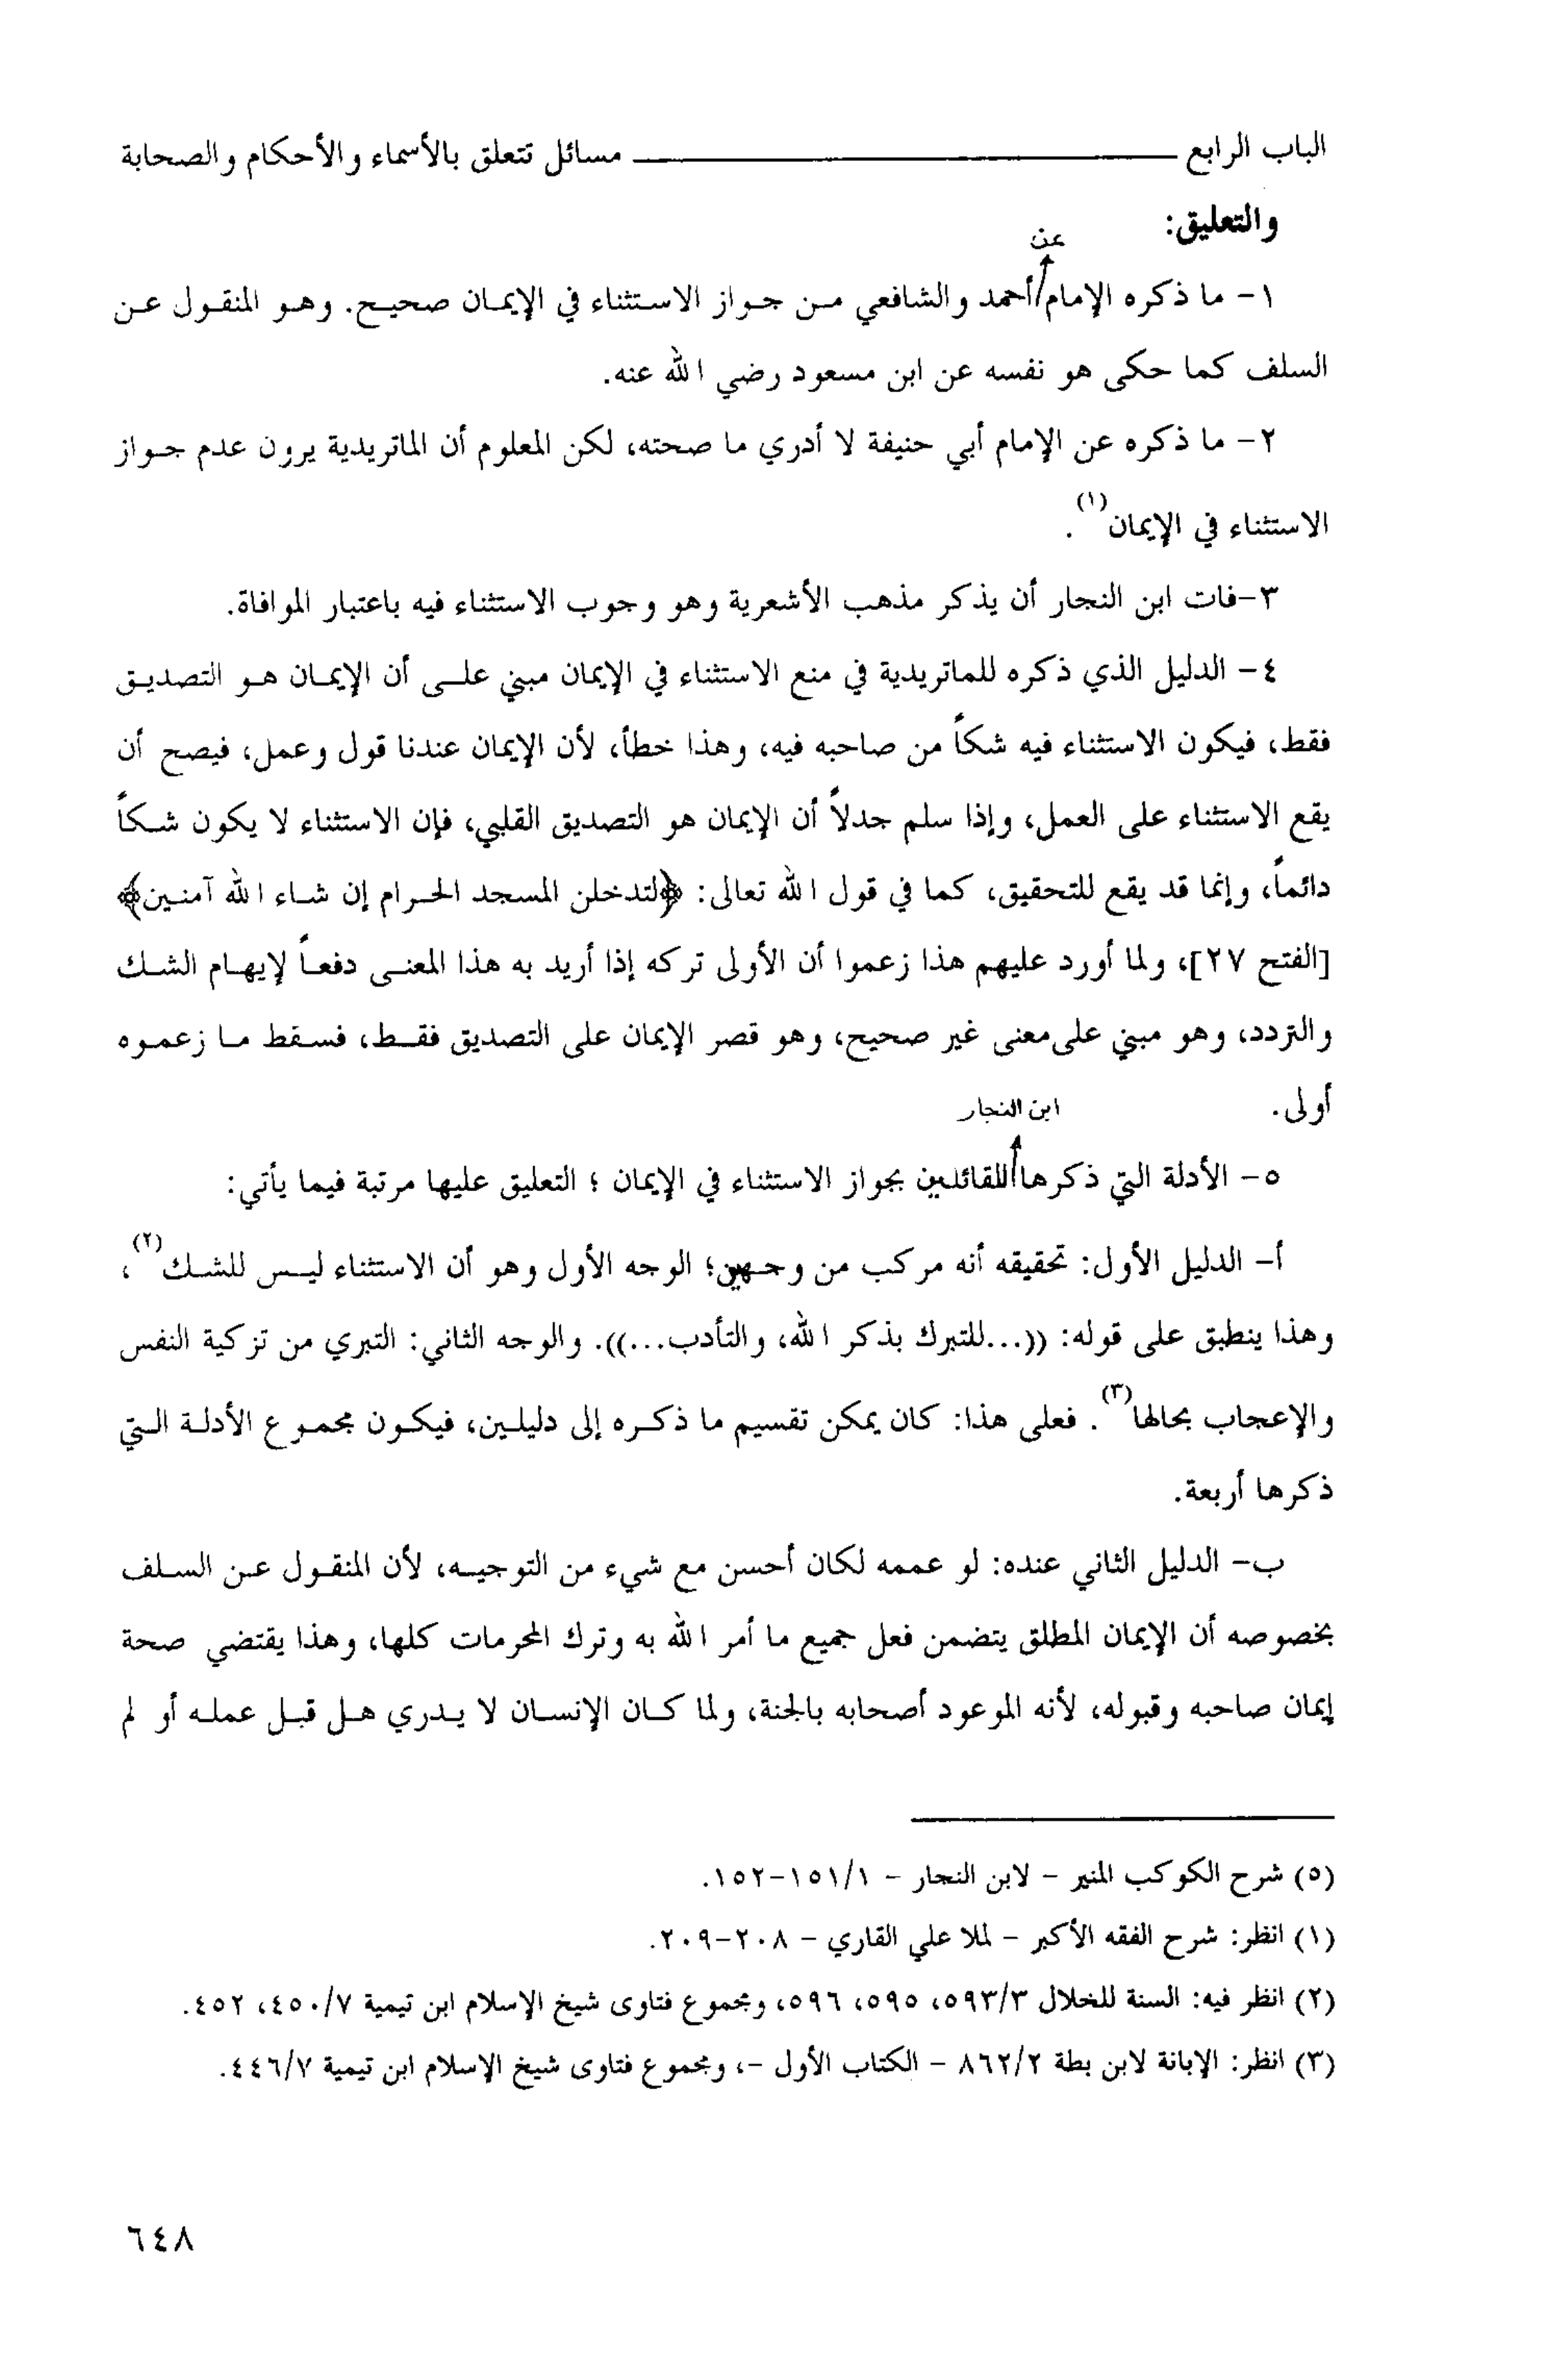 الباب الرابع ـــــــــــــــــ مسائل تتعلق بالأسماء والأحكام والصحابة
والتعليق:
عن
١- ما ذكره الإمام/أحمد والشافعي من جواز الاستثناء في الإيمان صحيح. وهو المنقول عن
السلف كما حكى هو نفسه عن ابن مسعود رضي الله عنه.
٢- ما ذكره عن الإمام أبي حنيفة لا أدري ما صحته، لكن المعلوم أن الماتريدية يرون عدم جواز
الاستثناء في الإيمان(١).
٣-فات ابن النجار أن يذكر مذهب الأشعرية وهو وجوب الاستثناء فيه باعتبار الموافاة.
٤- الدليل الذي ذكره للماتريدية في منع الاستثناء في الإيمان مبني على أن الإيمان هو التصديق
فقط، فيكون الاستثناء فيه شكاً من صاحبه فيه، وهذا خطأ، لأن الإيمان عندنا قول وعمل، فيصح أن
يقع الاستثناء على العمل، وإذا سلم جدلاً أن الإيمان هو التصديق القلبي، فإن الاستثناء لا يكون شكاً
دائماً، وإنما قد يقع للتحقيق، كما في قول الله تعالى: ﴿لتدخلن المسجد الحرام إن شاء الله آمنين﴾
[الفتح ٢٧]، ولما أورد عليهم هذا زعموا أن الأولى تركه إذا أريد به هذا المعنى دفعاً لإيهام الشك
والتردد، وهو مبني على معنى غير صحيح، وهو قصر الإيمان على التصديق فقط، فسقط ما زعموه
أولى.
ابن النجار
٥- الأدلة التي ذكرها/للقائلين بجواز الاستثناء في الإيمان ؛ التعليق عليها مرتبة فيما يأتي:
أ- الدليل الأول: تحقيقه أنه مركب من وجهين؛ الوجه الأول وهو أن الاستثناء ليس للشك(٢)،
وهذا ينطبق على قوله: ((...للتبرك بذكر الله، والتأدب...)). والوجه الثاني: التبري من تزكية النفس
والإعجاب بحالها(٣). فعلى هذا: كان يمكن تقسيم ما ذكره إلى دليلين، فيكون مجموع الأدلة التي
ذكرها أربعة.
ب- الدليل الثاني عنده: لو عممه لكان أحسن مع شيء من التوجيه، لأن المنقول عن السلف
بخصوصه أن الإيمان المطلق يتضمن فعل جميع ما أمر الله به وترك المحرمات كلها، وهذا يقتضي صحة
إيمان صاحبه وقبوله، لأنه الموعود أصحابه بالجنة، ولما كان الإنسان لا يدري هل قبل عمله أو لم
(٥) شرح الكوكب المنير - لابن النجار - ١/١٥١-١٥٢.
(١) انظر: شرح الفقه الأكبر - لملا علي القاري - ٢٠٨-٢٠٩.
(٢) انظر فيه: السنة للخلال ٣/٥٩٣، ٥٩٥، ٥٩٦، ومجموع فتاوى شيخ الإسلام ابن تيمية ٧/٤٥٠، ٤٥٢.
(٣) انظر: الإبانة لابن بطة ٢/٨٦٢ - الكتاب الأول -، ومجموع فتاوى شيخ الإسلام ابن تيمية ٧/٤٤٦.
٦٤٨